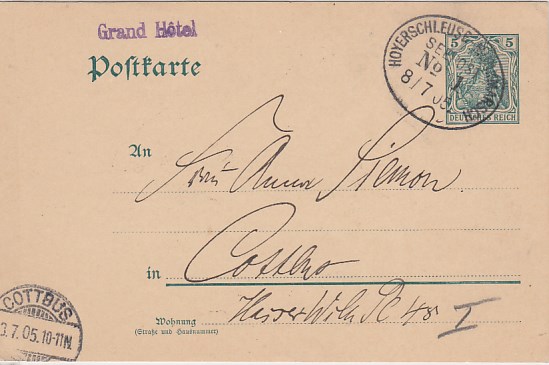 Grand Hôtel
Postkarte
HOYERSCHLEUSE
SEEPOST
No
8/7 05
5 5
DEUTSCHES REICH
An
Frau Anna Siemon
in
Cottbus
Wohnung
(Straße und Hausnummer)
Kaiser Wilh Pl 48 I
COTTBUS
3.7.05.10-11N.